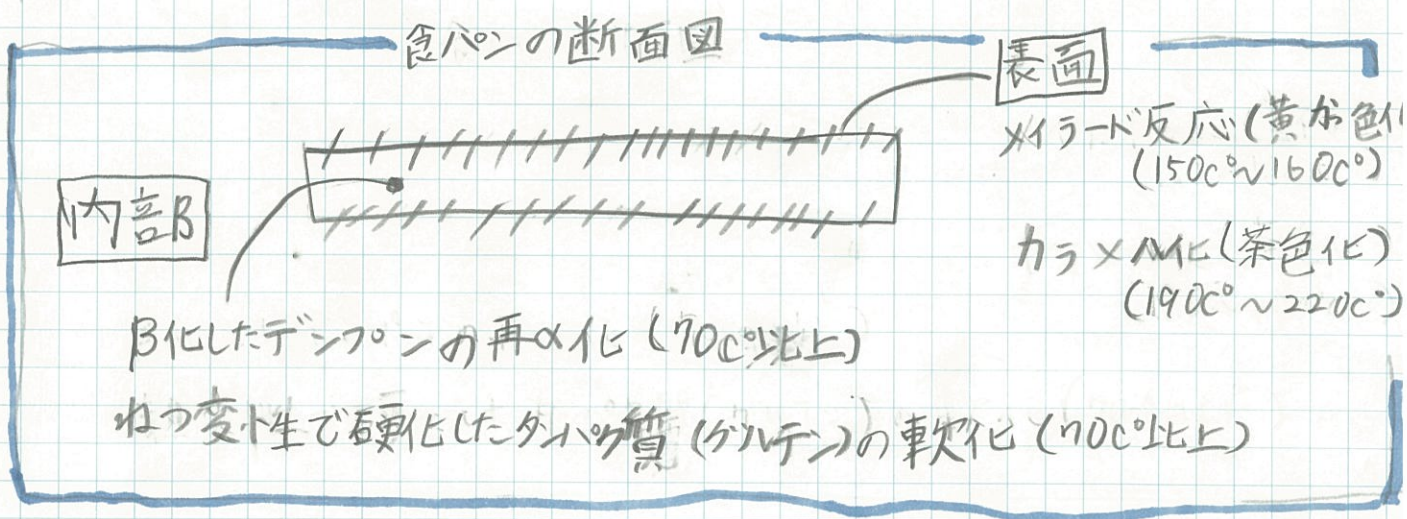 食パンの断面図
表面
メイラード反応(黄か色化
(150c°~160c°)
カラメル化(茶色化)
(190c°~220c°)
内部
β化したデンプンの再α化(70c°以上)
ねつ変性で硬化したタンパク質(グルテン)の軟化(70c°以上)